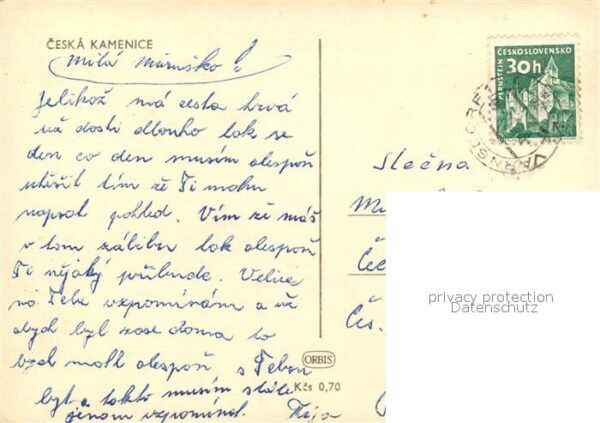 ČESKÁ KAMENICE
Milá Maruško!
Jelikož má cesta trvá
už dosti dlouho tak se
den co den musím alespoň
utěšit tím že Ti mohu
napsat pohled. Vím že máš
v tom zálibu tak alespoň
Ti nějaký přibude. Velice
na Tebe vzpomínám a už
abych byl zase doma to
bych mohl alespoň s Tebou
být a takto musím stále
jenom vzpomínat.
ORBIS
Kčs 0,70
ČESKOSLOVENSKO
PERNŠTEJN
30h
VARNSDORF
Slečna
Čes.
privacy protection
Datenschutz